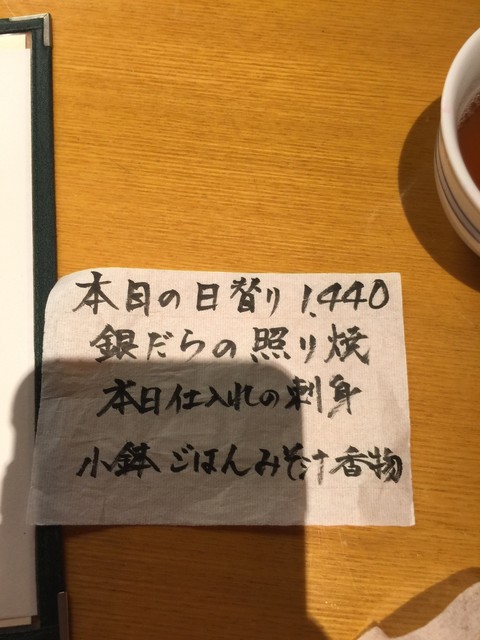 本日の日替り 1,440
銀だらの照り焼
本日仕入れの刺身
小鉢ごはんみそ汁香物